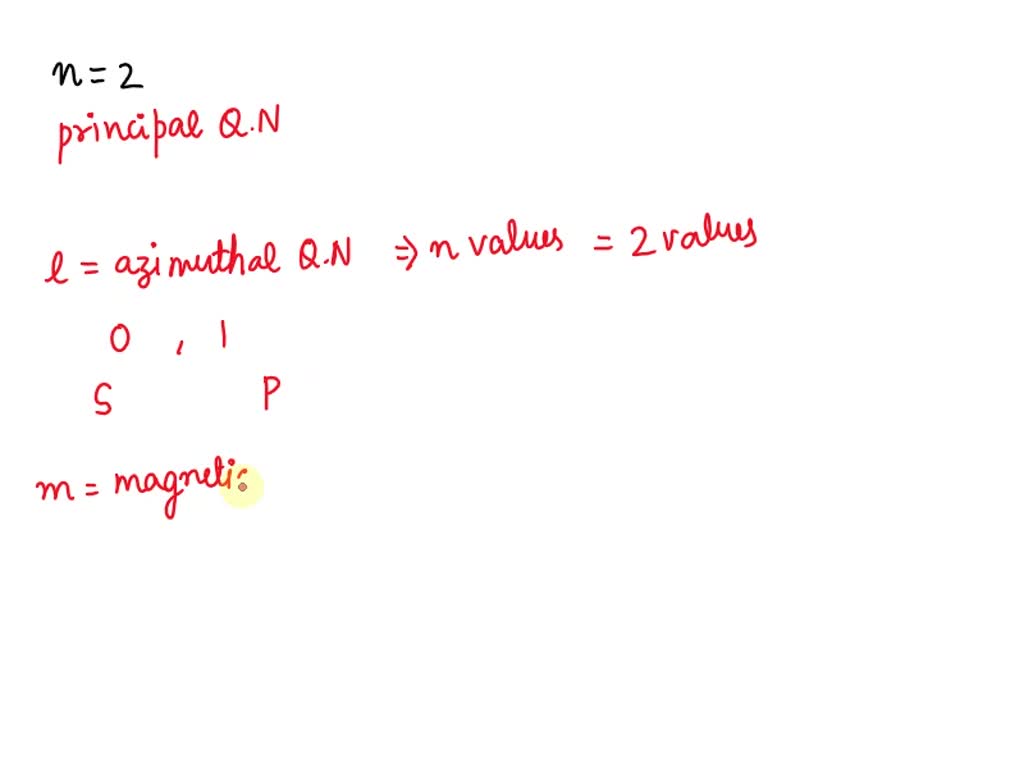 n = 2
principal Q.N
l = azimuthal Q.N ⇒ n values = 2 values
0 , 1
S P
m = magnetic